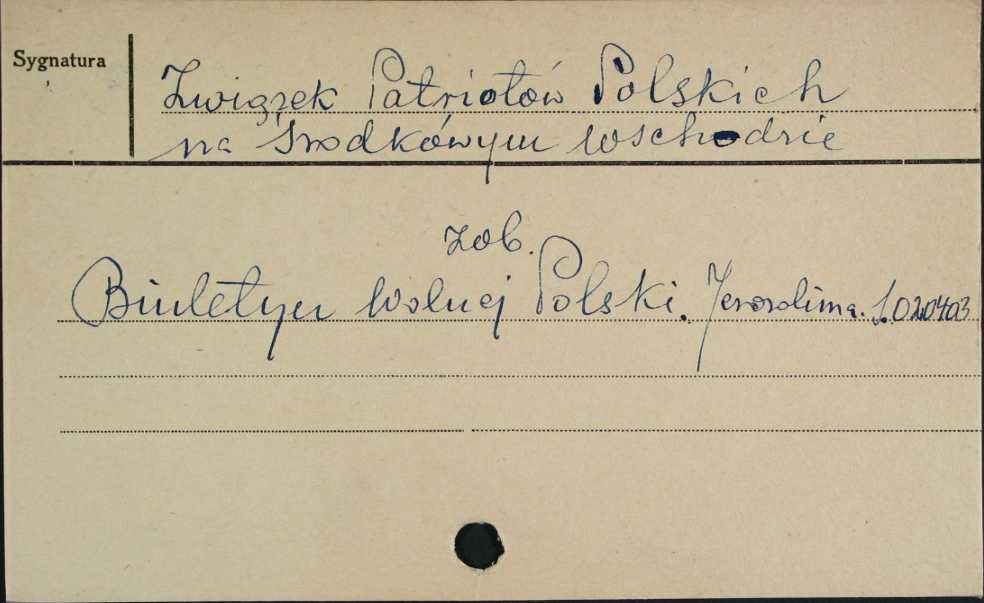 Sygnatura
Związek Patriotów Polskich
na Środkowym Wschodzie
zob.
Biuletyn Wolnej Polski. Jerozolima.